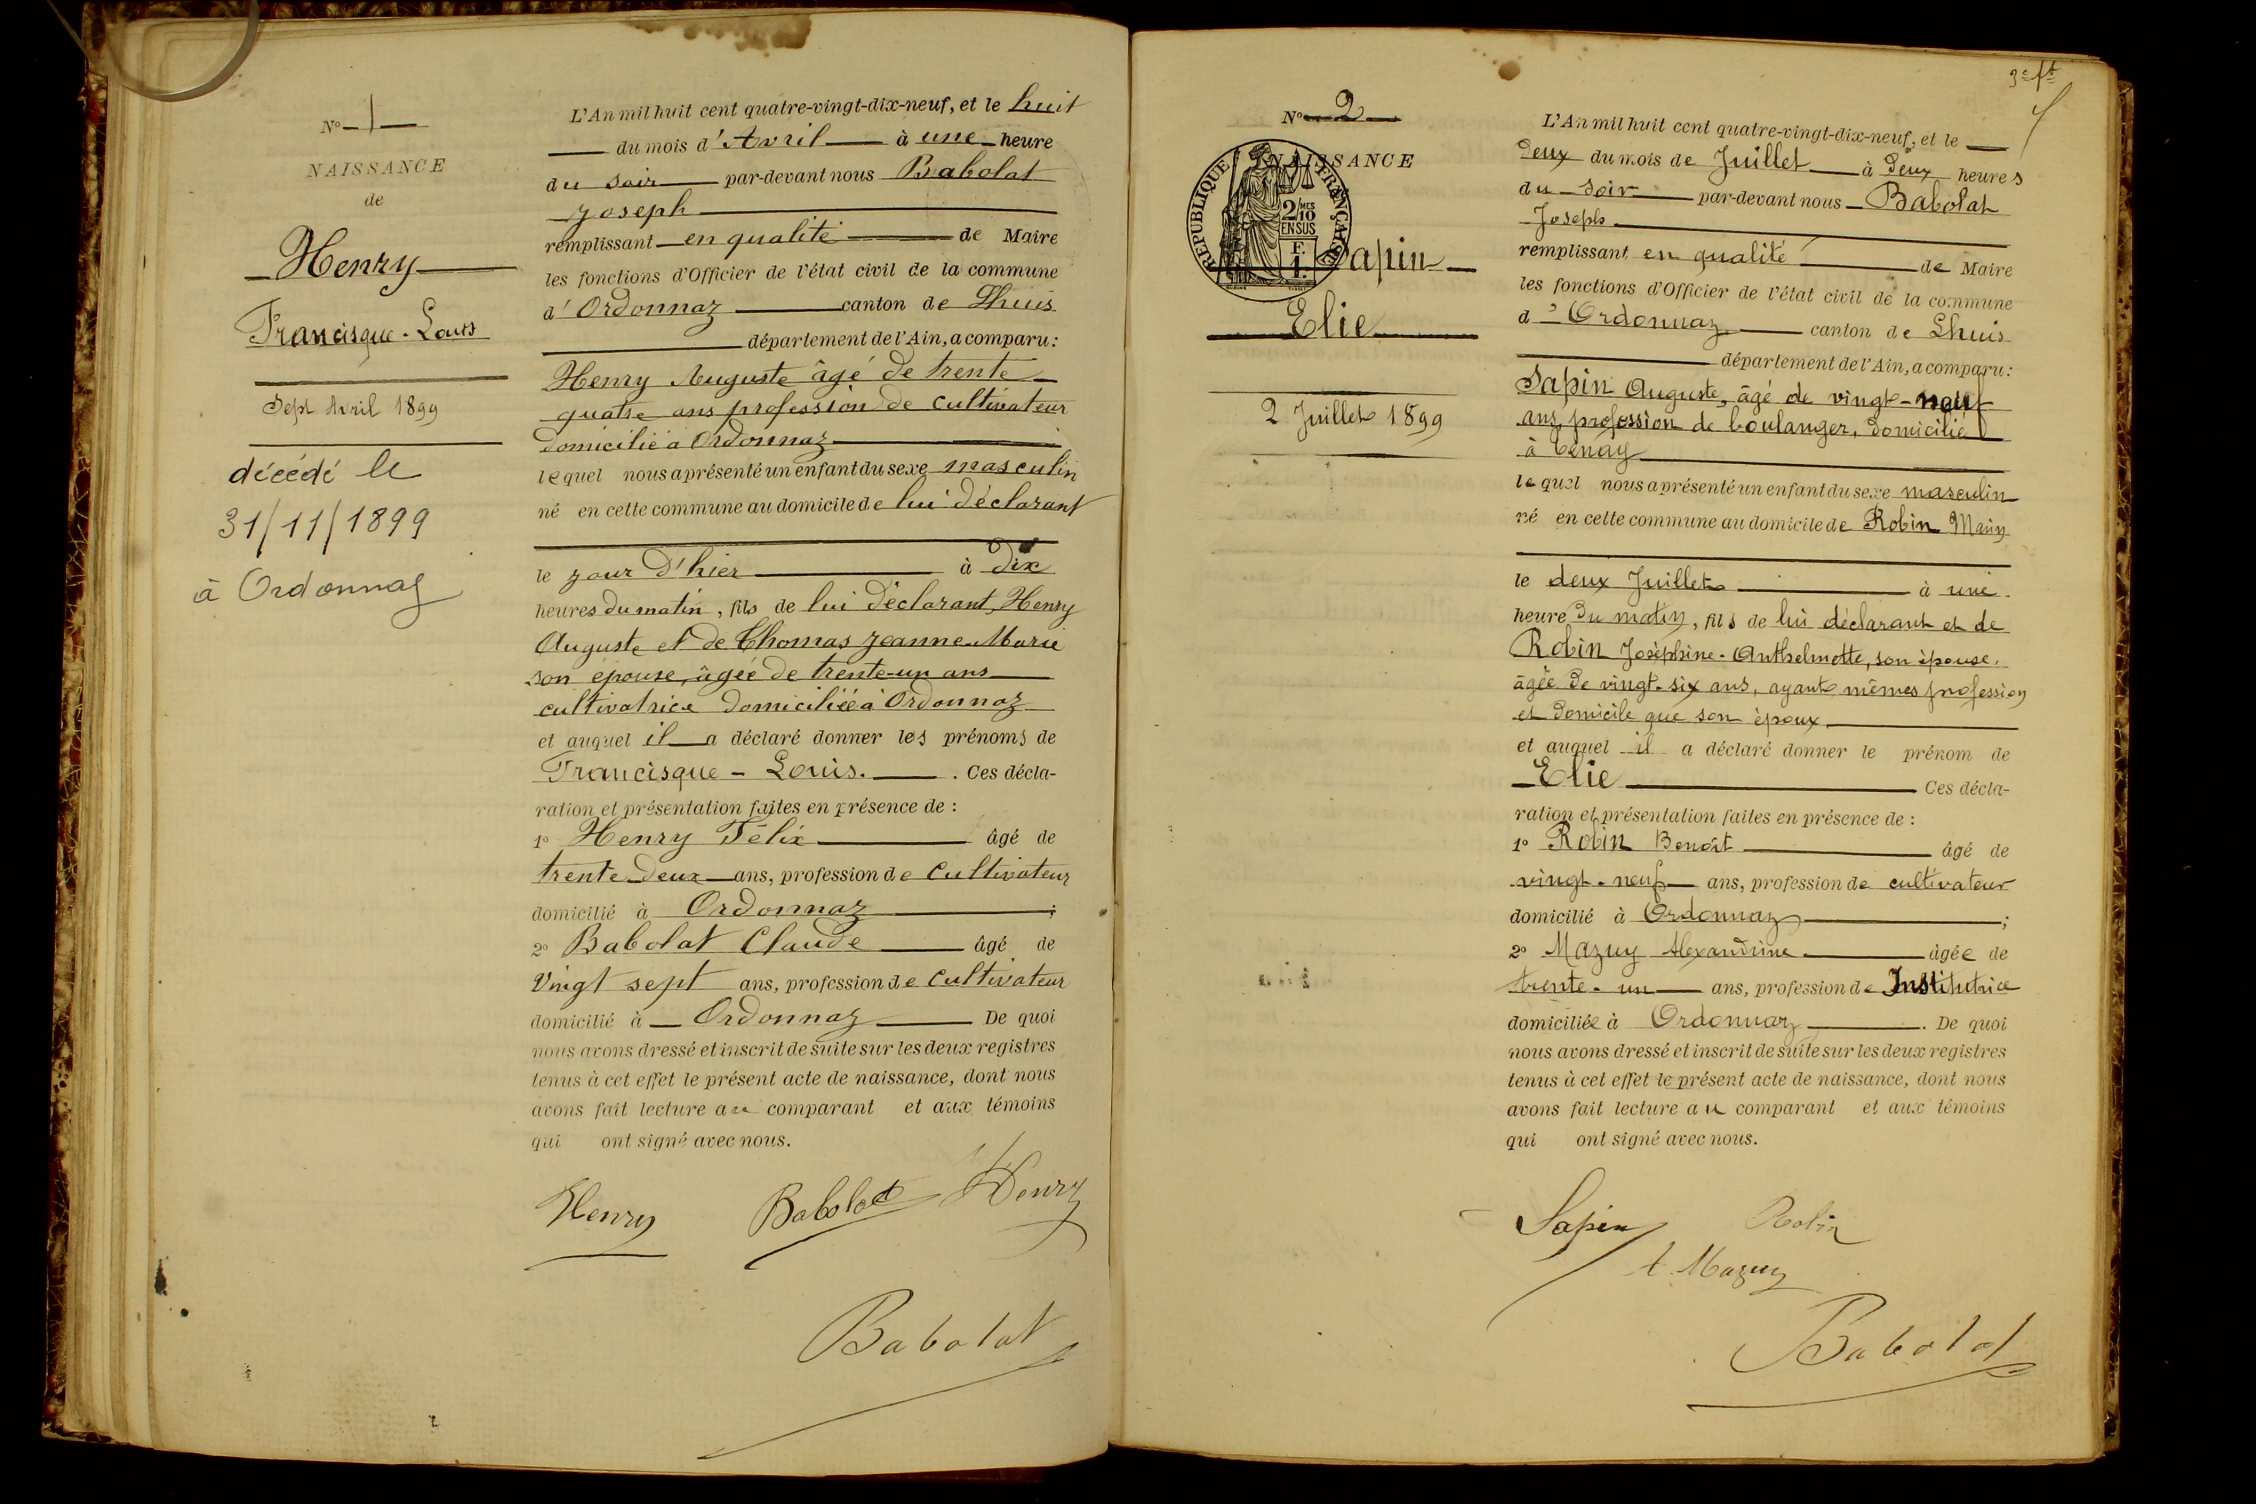 N° 1
NAISSANCE
de
Henry
Francisque-Louis
Sept Avril 1899
décédé le
31/11/1899
à Ordonnaz
L'An mil huit cent quatre-vingt-dix-neuf, et le huit
du mois d'Avril à une heure
du soir par-devant nous Babolat
Joseph
remplissant en qualité de Maire
les fonctions d'Officier de l'état civil de la commune
d'Ordonnaz canton de Lhuis
département de l'Ain, a comparu:
Henry Auguste âgé de trente
quatre ans profession de cultivateur
domicilié à Ordonnaz
lequel nous a présenté un enfant du sexe masculin
né en cette commune au domicile de lui déclarant
le jour d'hier à dix
heures du matin, fils de lui déclarant, Henry
Auguste et de Thomas Jeanne-Marie
son épouse, âgée de trente-un ans
cultivatrice domiciliée à Ordonnaz
et auquel il a déclaré donner les prénoms de
Francisque - Louis. Ces décla-
ration et présentation faites en présence de :
1° Henry Félix âgé de
trente-deux ans, profession de cultivateur
domicilié à Ordonnaz ;
2° Babolat Claude âgé de
Vingt sept ans, profession de cultivateur
domicilié à Ordonnaz De quoi
nous avons dressé et inscrit de suite sur les deux registres
tenus à cet effet le présent acte de naissance, dont nous
avons fait lecture au comparant et aux témoins
qui ont signé avec nous.
Henry Babolat Henry
Babolat
3e ft
N° 2
NAISSANCE
REPUBLIQUE FRANÇAISE
2 MES
10
EN SUS
F.
1.
Sapin
Elie
2 Juillet 1899
L'An mil huit cent quatre-vingt-dix-neuf, et le
deux du mois de Juillet à deux heures
du soir par-devant nous Babolat
Joseph
remplissant en qualité de Maire
les fonctions d'Officier de l'état civil de la commune
d'Ordonnaz canton de Lhuis
département de l'Ain, a comparu:
Sapin Auguste, âgé de vingt-neuf
ans, profession de boulanger, domicilié
à Tenay
lequel nous a présenté un enfant du sexe masculin
né en cette commune au domicile de Robin
le deux Juillet à une
heure du matin, fils de lui déclarant et de
Robin Josèphine-Anthelmette, son épouse,
âgée de vingt-six ans, ayant mêmes profession
et domicile que son époux
et auquel il a déclaré donner le prénom de
Elie Ces décla-
ration et présentation faites en présence de :
1° Robin Benoît âgé de
vingt-neuf ans, profession de cultivateur
domicilié à Ordonnaz ;
2° Mazuy Alexandrine âgée de
trente-un ans, profession de Institutrice
domiciliée à Ordonnaz. De quoi
nous avons dressé et inscrit de suite sur les deux registres
tenus à cet effet le présent acte de naissance, dont nous
avons fait lecture au comparant et aux témoins
qui ont signé avec nous.
Sapin Robin
A. Mazuy
Babolat